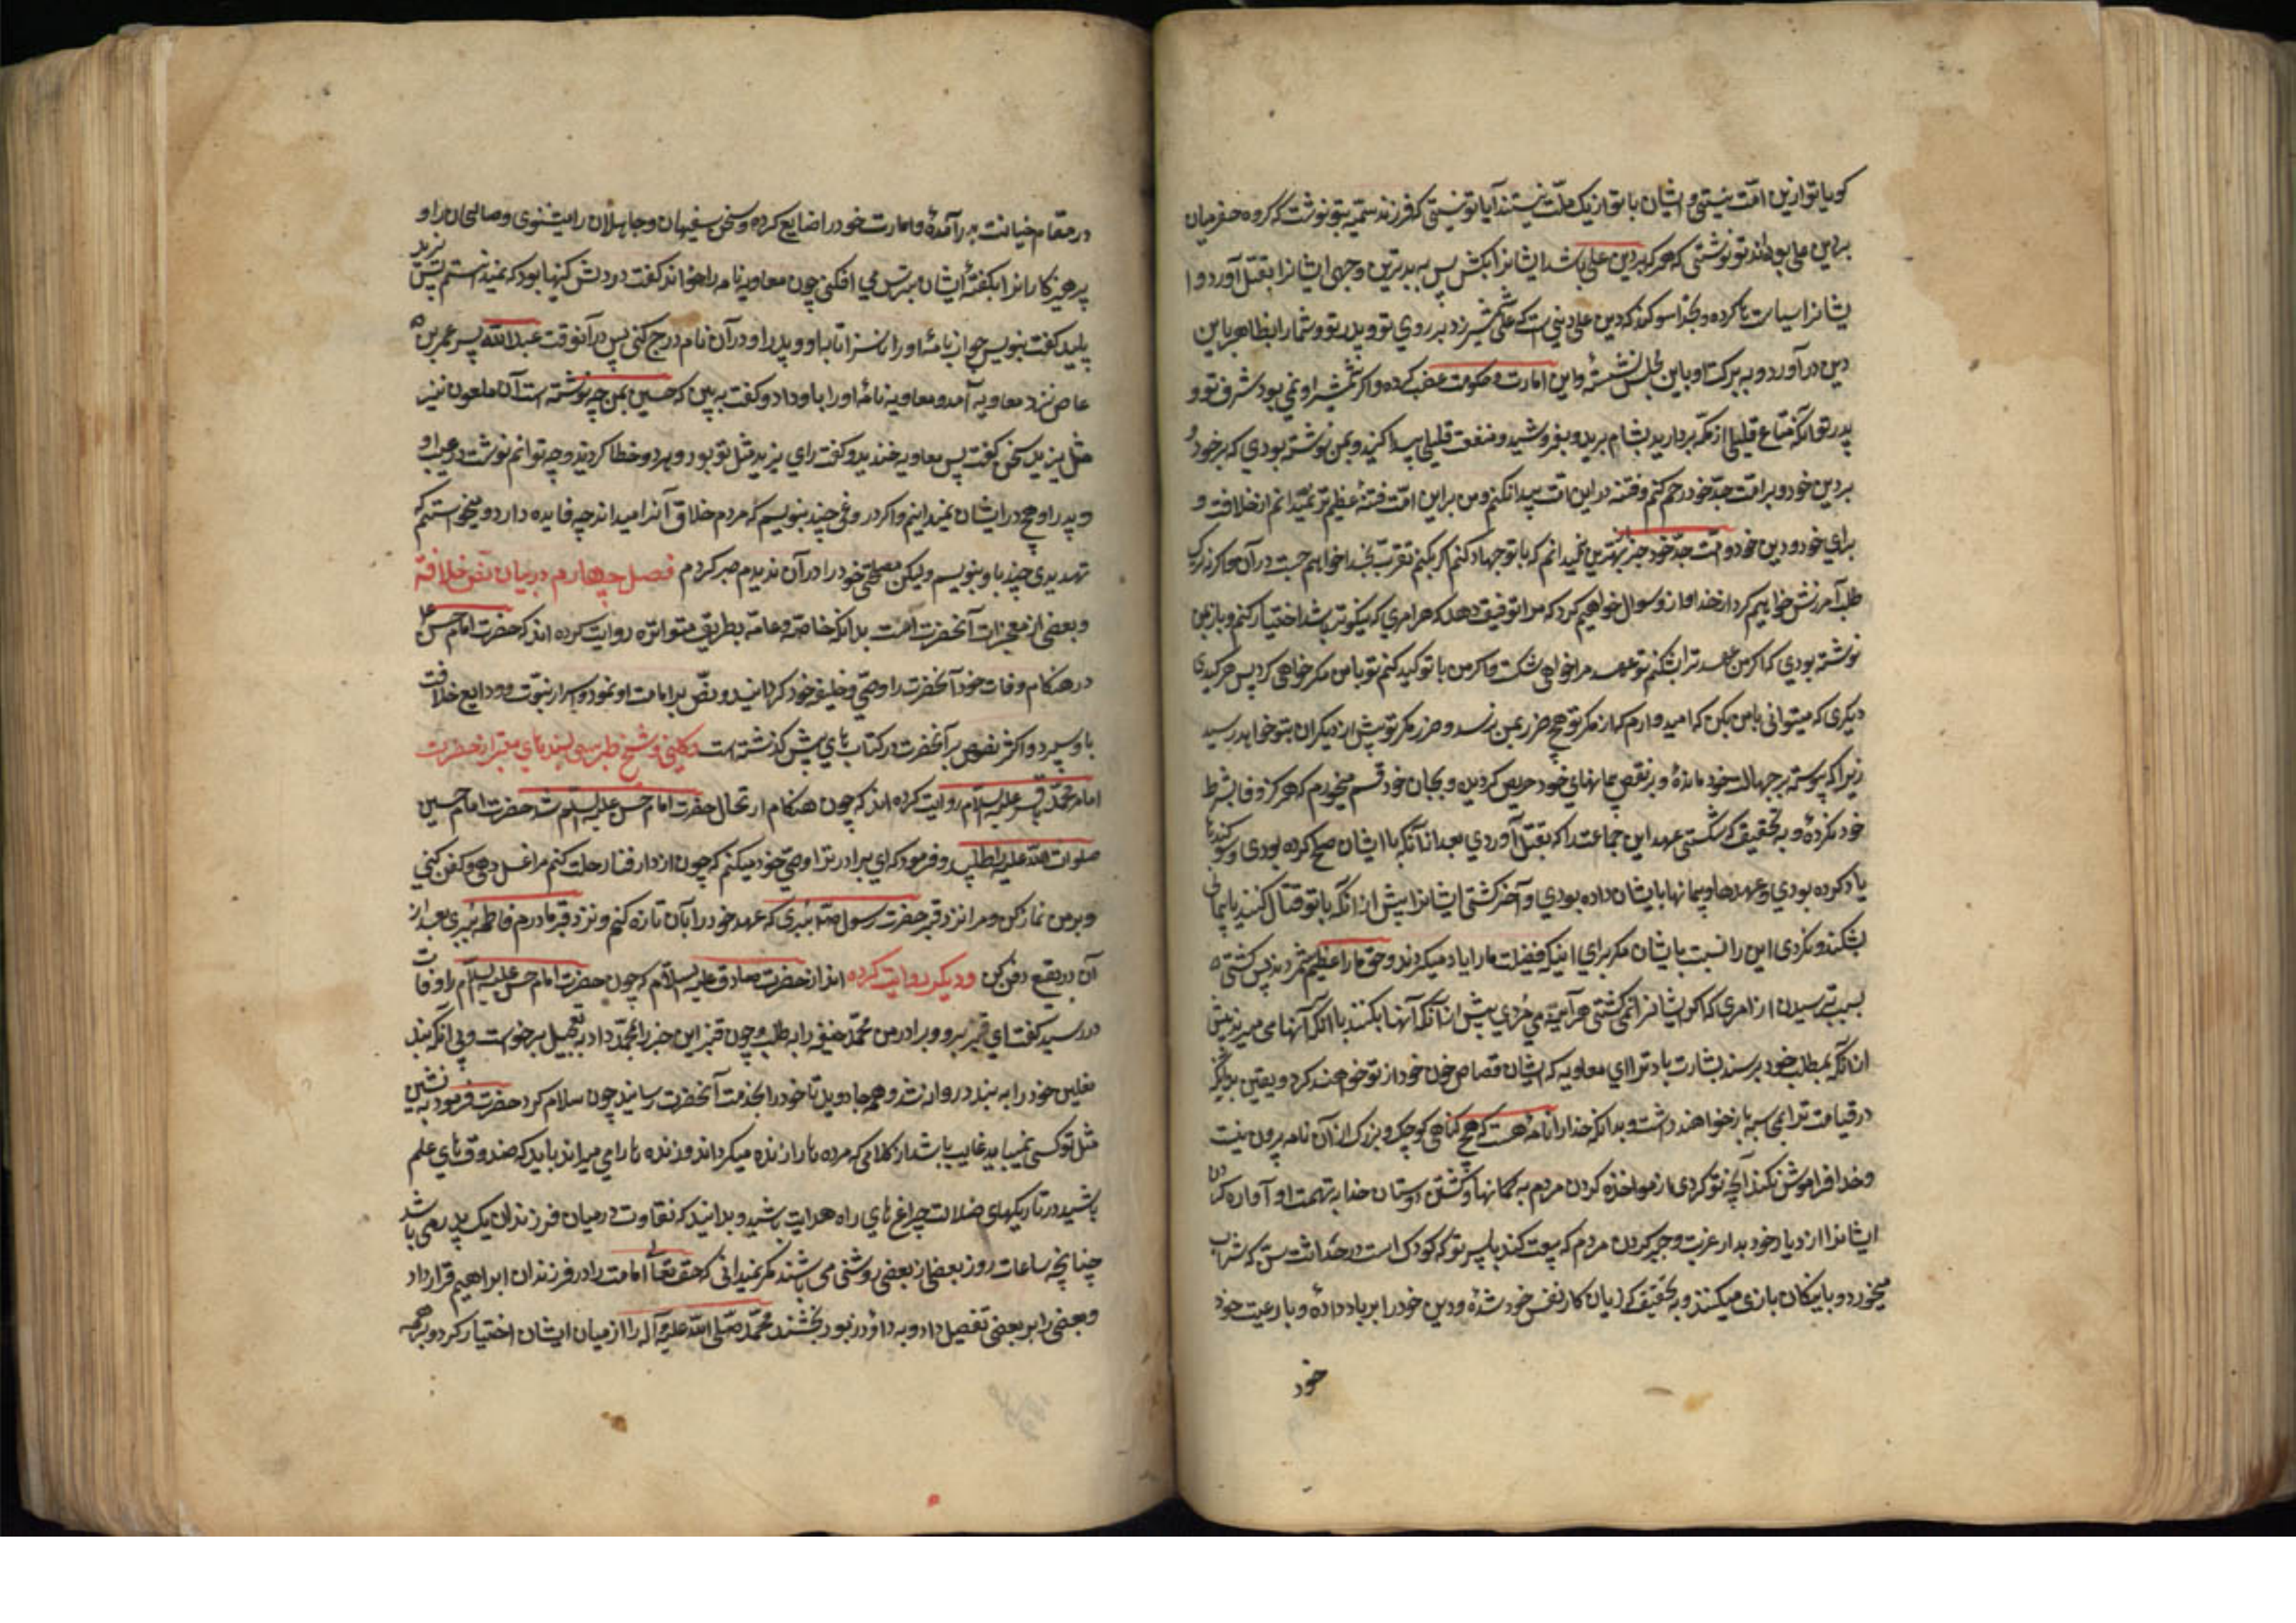 کویا تو ازین امّت نیستی و ایشان با تو از یک ملّت نیستند آیا تو نیستی که فرزند سمیّه بتو نوشت که گروه حضرمیان
بر دین علی بوده‌اند تو نوشتی که هر که بر دین علی باشد ایشانرا بکش پس به بدترین وجهی ایشانرا بقتل آورد و ا
یشانرا سیاست‌ها کرده و بخدا سوکند که دین علی دینی‌ست که علی شمشیر زد بر روی تو و پدر تو و شما را بظاهر باین
دین در آورد و به برکت او باین مجلس نشسته و این امارت و حکومت غصب کرده و اکر شمشیر او نمی بود شرف تو و
پدر تو آن بود که متاع قلیلی از مکّه بردارید بشام برید و بفروشید و منفعت قلیلی پیدا کنید و بمن نوشته بودی که بر خود و
بر دین خود و بر امّت جدّ خود رحم کنم و فتنه در این امّت پیدا نکنم و من بر این امّت فتنهٔ عظیم‌تر نمیدانم از خلافت و
برای خود و دین خود و امّت جدّ خود چیز بهترین نمیدانم که با تو جهاد کنم اکر بکنم تقرّبست بخدا خواهم جست در آن و اکر نه ترک
طلب آمرزش خواهم کرد از خدا و از و سوال خواهم کرد که مرا توفیق دهد که هر امری که نیکوتر باشد اختیار کنم و باز بمن
نوشته بودی که اکر من عهد ترا بشکنم تو عهد مرا خواهی شکست و اکر من با تو کید کنم تو با من مکر خواهی کرد پس هر کیدی
دیکری که میتوانی با من بکن که امیدوارم که از مکر تو هیچ ضرر بمن نرسد و ضرر مکر تو پیش از دیکران بتو خواهد رسید
زیرا که پیوسته بر جهالت خود مانده و بر نقض پیمانهای خود حریص کردیده و بجان خود قسم میخورم که هرکز وفا بشرط
خود نکردهٔ و به تحقیق که شکستی عهد این جماعت را که بقتل آوردی بعد از آنکه با ایشان صلح کرده بودی و سوکندها
یاد کرده بودی و عهدها و پیمانها بایشان داده بودی و آخر کشتی ایشانرا پیش از آنکه با تو قتال کنند یا پیمانی
بشکنند و نکردی این را نسبت بایشان مکر برای اینکه فضیلت ما را یاد میکردند و حق ما را عظیم می‌شمردند پس کشتی
بسبب ترسیدن از امری که اکر ایشانرا نمی کشتی هر آینه می مُردی پیش از آنکه آنها بکنند یا آنکه آنها می میرند پیش
از آنکه بمطلب خود برسند بشارت باد ترا ای معاویه که ایشان قصاص خون خود از تو خواهند کرد و یقین بدانکه
در قیامت ترا بمحاسبه باز خواهند داشت و بدانکه خدا را نامهٔ هست که هیچ کناهی کوچک و بزرک از آن نامه بیرون نیست
و خدا فراموش نمیکند آنچه تو کردی از مواخذه کردن مردم به کمانها و کشتن دوستان خدا به تهمت و آواره کردن
ایشانرا از دیار خود بدار غربت و جبر کردن مردم که بیعت کنند با پسر تو که کودک است در حداثت سن که شراب
میخورد و با سکان بازی میکنند و به تحقیق که زیان کار نفس خود شدهٔ و دین خود را بر باد دادهٔ و با رعیت خود
خود
در مقام خیانت بر آمدهٔ و امارت خود را ضایع کرده و سخن سفیهان و جاهلان را میشنوی و صالحان را و
پرهیزکارانرا بکفتهٔ ایشان بترس می افکنی چون معاویه نامه را خواند کفت در دلش کینها بود که نمیدانستم پس یزید
پلید کفت بنویس جواب نامهٔ او را ناسزاها باو و پدر او در آن نامه درج کنی پس در آنوقت عبدالله پسر عمرو بن
عاص نزد معاویه آمد و معاویه نامهٔ او را باو داد و کفت به بین که حسین بمن چه نوشته است آن ملعون نیز
مثل یزید سخن کفت پس معاویه خندید و کفت رای یزید مثل تو بود و هر دو خطا کردید و چه توانم نوشت در عیب او
و پدر او هیچ در ایشان نمیدانیم و اکر دروغی چند بنویسم که مردم خلاف آنرا میدانند چه فایده دارد و میخواستم که
تهدیدی چند باو بنویسم ولیکن مصلحتی خود را در آن ندیدم صبر کردم فصل چهارم در بیان نص خلافة
و بعضی از معجزات آنحضرت است بدانکه خاصّه و عامّه بطریق متواتره روایت کرده اند که حضرت امام حسن ع
در هنکام وفات خود آنحضرت را وصی و خلیفه خود کردانید و نصّ بر امامت او نمود و اسرار نبوّت و ودایع خلافت
باو سپرد و اکثر نصوص بر آنحضرت در کتاب های پیش کذشته است و کلینی و شیخ طبرسی بسند های معتبر از حضرت
امام محمّد باقر علیه السلام روایت کرده اند که چون هنکام ارتحال حضرت امام حسن علیه السلام شد حضرت امام حسین
صلوات الله علیه را طلبید و فرمود که ای برادر ترا وصی خود میکنم که چون از دار فنا رحلت کنم مرا غسل دهی و کفن کنی
و بر من نماز کن و مرا نزد قبر حضرت رسول ص ببری که عهد خود را بآن تازه کنم و نزد قبر مادرم فاطمه ببری بعد از
آن در بقیع دفن کن و دیکر روایت کرده اند از حضرت صادق علیه السلام که چون حضرت امام حسن علیه السلام را وفات
در رسید کفت ای قنبر برو و برادر من محمّد حنفیه را به طلب و چون قنبر این خبر را بمحمّد داد به تعجیل برخواست و بی آنکه بند
نعلین خود را به بندد روانه شد و همه جا دوید تا خود را بخدمت آنحضرت رسانید چون سلام کرد حضرت فرمود به نشین
مثل تو کسی نمیباید غایب باشد از کلامی که مرده ها را زنده میکرداند و زنده ها را می میراند باید که صندوق های علم
باشید در تاریکهای ضلالت چراغ های راه هدایت باشید و بدانید که تفاوت در میان فرزندان یک پدر می باشد
چنانچه ساعات روز بعضی از بعضی روشنی می باشند مکر نمیدانی که حق تعالی امامت را در فرزندان ابراهیم قرار داد
و بعضی را بر بعضی تفضیل داد و به داؤد زبور بخشند محمّد صلّی الله علیه و آله را از میان ایشان اختیار کرد و بر همه